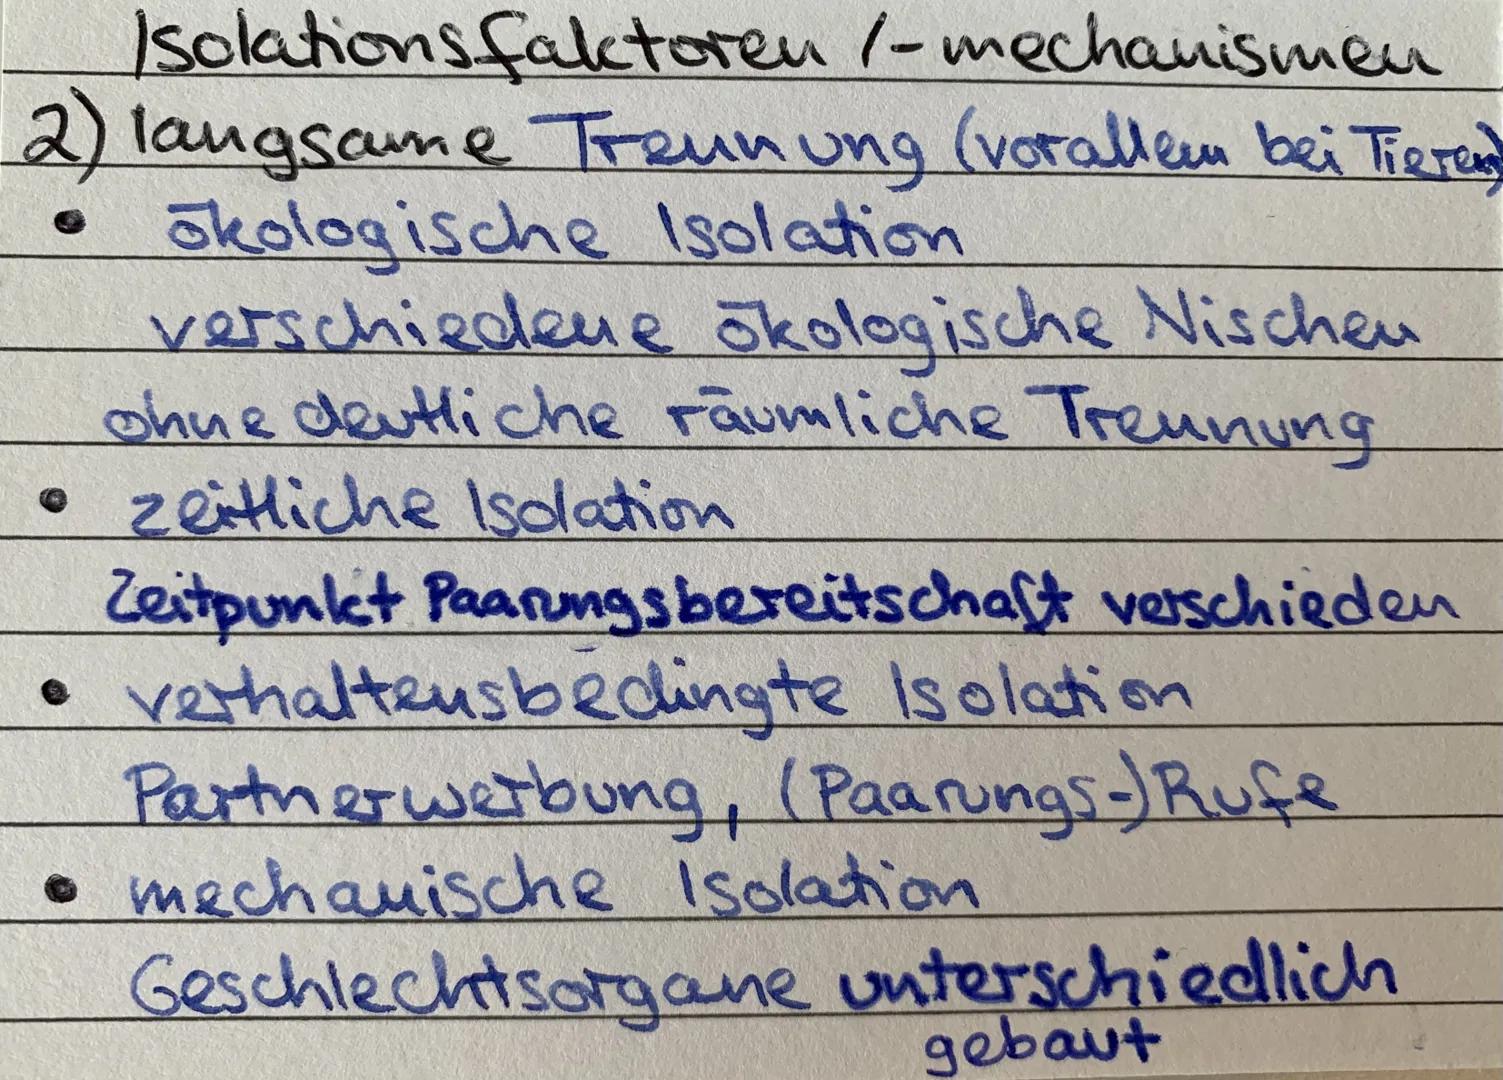 Isolationsfaktoren /-mechanismen
2) langsame Trennung (vorallem bei Tieren)
• ökologische Isolation
verschiedene ökologische Nischen
ohne deutliche räumliche Trennung
• zeitliche Isolation
Zeitpunkt Paarungsbereitschaft verschieden
• verhaltensbedingte Isolation
Partnerwerbung, (Paarungs-)Rufe
• mechanische Isolation
Geschlechtsorgane unterschiedlich
gebaut